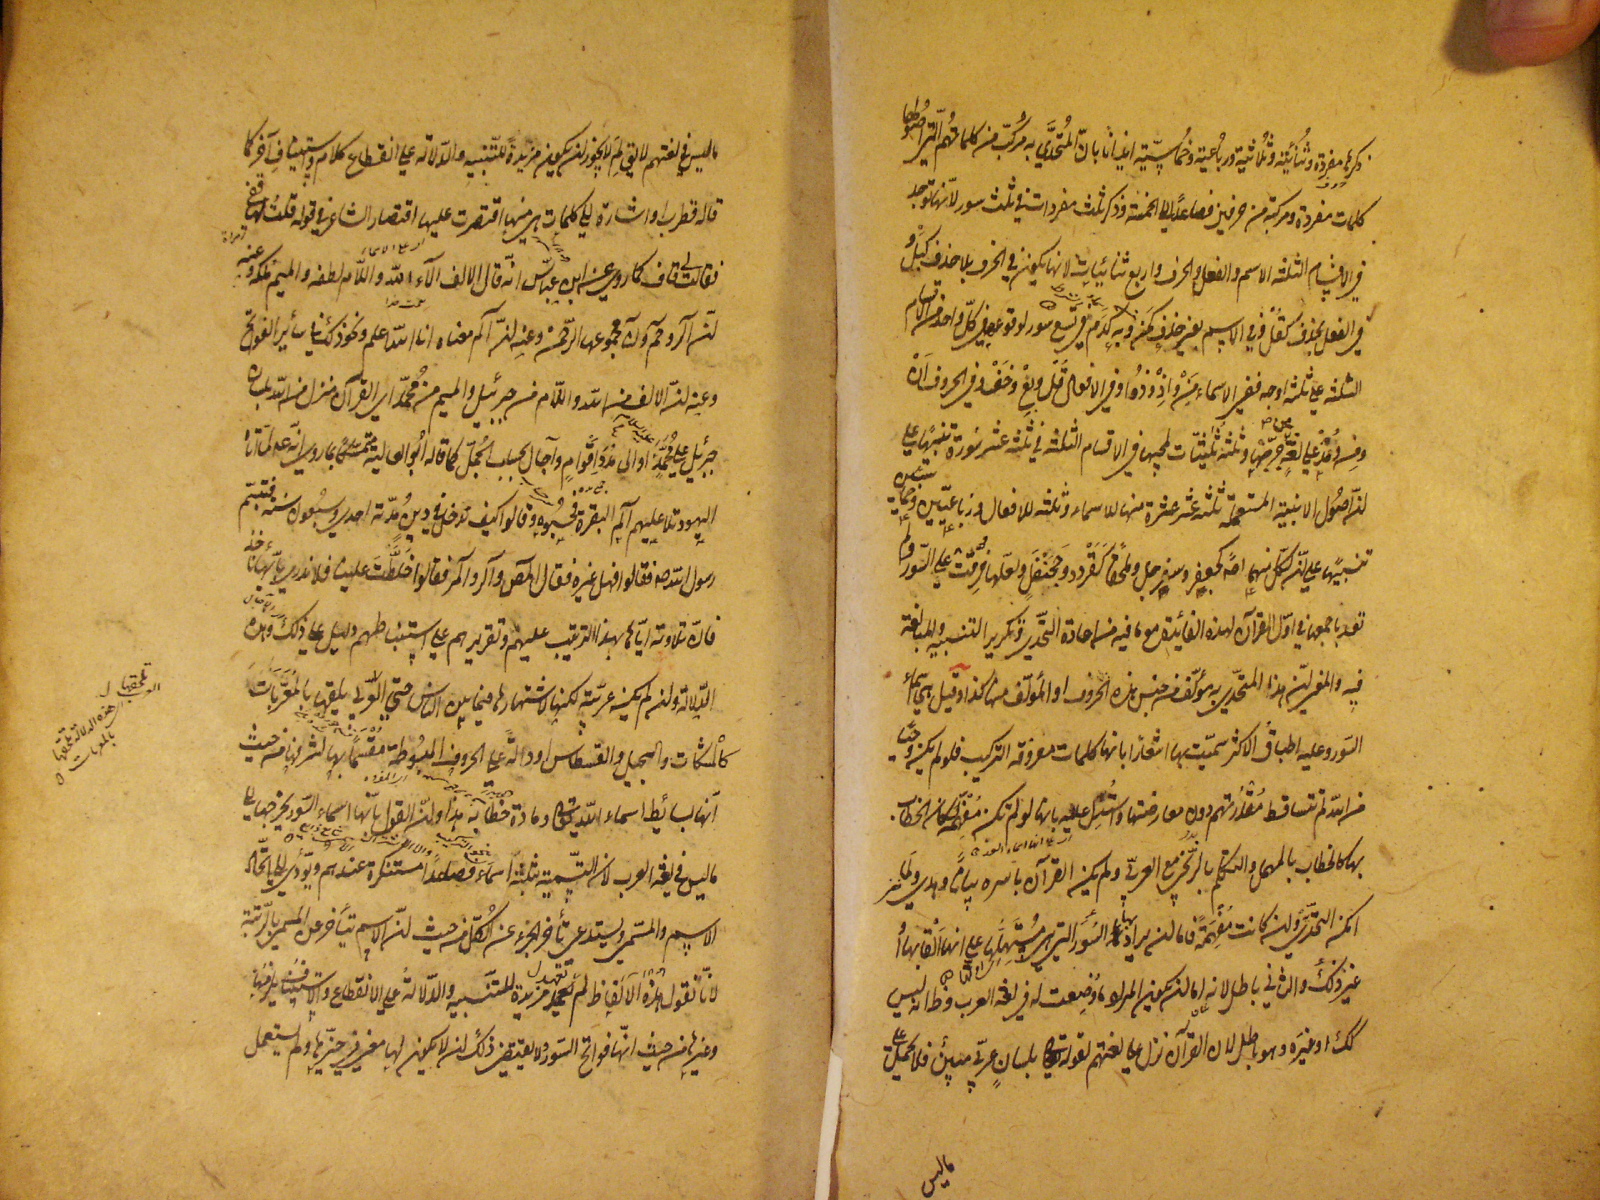 ذكرها مفردة وثنائية وثلاثية ورباعية وخماسية ايذانا بان المتحدى به مركب من كلماتهم التى اصولها
كلمات مفردة ومركبة من حرفين فصاعدا الى الخمسة وذكر ثلث مفردات فى ثلث سور لانها توجد
فى الاقسام الثلثة الاسم والفعل والحرف واربع ثنائيات لانها يكون فى الحرف بلا حذف كبل و
فى الفعل بحذف كقل وفى الاسم بغير حذف كمن وبه كدم فى تسع سور لوقوعها فى كل واحد من الاقسام
الثلثة على ثلثة اوجه ففى الاسماء من واذ وذو وفى الافعال قل وبع وخف وفى الحروف ان
ومن ومذ على لغة من جر بها وثلث ثلثيات لمجيها فى الاقسام الثلثة فى ثلثة عشر سورة تنبيها على
ان اصول الابنية المستعملة ثلثة عشر عشرة منها للاسماء وثلثة للافعال ورباعيتين وخماسيتين
تنبيها على ان لكل منهما اصلا كجعفر وسفرجل وملحقا كقردد وجحنفل ولعلها فرقت على السور ولم
تعد باجمعها فى اول القرآن لهذه الفائدة مع ما فيه من اعادة التحدى وتكرير التنبيه والمبالغة
فيه والمعنى ان هذا المتحدى به مؤلف من جنس هذه الحروف او المؤلف منها كذا وقيل هى اسماء
السور وعليه اطباق الاكثر سميت بها اشعارا بانها كلمات معروفة التركيب فلو لم يكن وحيا
من الله لم تتساقط مقدرتهم دون معارضتها واستدل عليه بانها لو لم تكن مفهمة كان الخطاب
بها كالخطاب بالمهمل والتكلم بالزنجى مع العربى ولم يكن القرآن باسره بيانا وهدى ولما
امكن التحدى به وان كانت مفهمة فاما ان يراد بها السور التى هى مستهلها على انها القابها او
غير ذلك والثانى باطل لانه اما ان يكون المراد ما وضعت له فى لغة العرب وظاهر انه ليس
كك او غيره وهو باطل لان القرآن نزل على لغتهم لقوله تعالى بلسان عربى مبين فلا يحمل على
ماليس
ماليس فى لغتهم لا يقال لم لا يجوز ان يكون مزيدة للتنبيه والدلالة على انقطاع كلام واستيناف آخر كما
قاله قطرب او اشارة الى كلمات هى منها اقتصرت عليها اقتصار الشاعر فى قوله قلت لها قفى
فقالت لى قاف كما روى عن ابن عباس انه قال الالف آلاء الله واللام لطفه والميم ملكه وعنه
ان الر وحم ون مجموعها الرحمن وعنه ان الم معناه انا الله اعلم ونحو ذلك فى سائر الفواتح
وعنه ان الالف من الله واللام من جبرئيل والميم من محمد اى القرآن منزل من الله بلسان
جبرئيل على محمد او الى مدد اقوام وآجال بحساب الجمل كما قاله ابو العالية متمسكا بما روى انه عم لما اتاه
اليهود تلا عليهم الم البقرة فحسبوه وقالوا كيف ندخل فى دين مدته احدى وسبعون سنة فتبسم
رسول الله صم فقالوا فهل غيره فقال المص والر والمر فقالوا خلطت علينا فلا ندرى بايها ناخذ
فان تلاوته اياها بهذا الترتيب عليهم وتقريرهم على استنباطهم دليل على ذلك وهذه
الدلالة وان لم يكن عربية لكنها لاشتهارها فيما بين الناس حتى العرب يلحقها بالمعربات
كالمشكاة والسجيل والقسطاس او دالة على الحروف المبسوطة مقسما بها لشرفها من حيث
انها بسائط اسماء الله تعالى ومادة خطابه هذا وان القول بانها اسماء السور يخرجها الى
ماليس فى لغة العرب لان التسمية بثلثة اسماء فصاعدا مستنكرة عندهم ويؤدى الى اتحاد
الاسم والمسمى ويستدعى تأخر الجزء عن الكل من حيث ان الاسم يتأخر عن المسمى بالرتبة
لانا نقول هذه الالفاظ لم تعهد مزيدة للتنبيه والدلالة على الانقطاع والاستيناف يلزمها
وغيرها من حيث انها فواتح السور ولا يقتضى ذلك ان لا يكون لها معنى فى حيزها ولم يستعمل